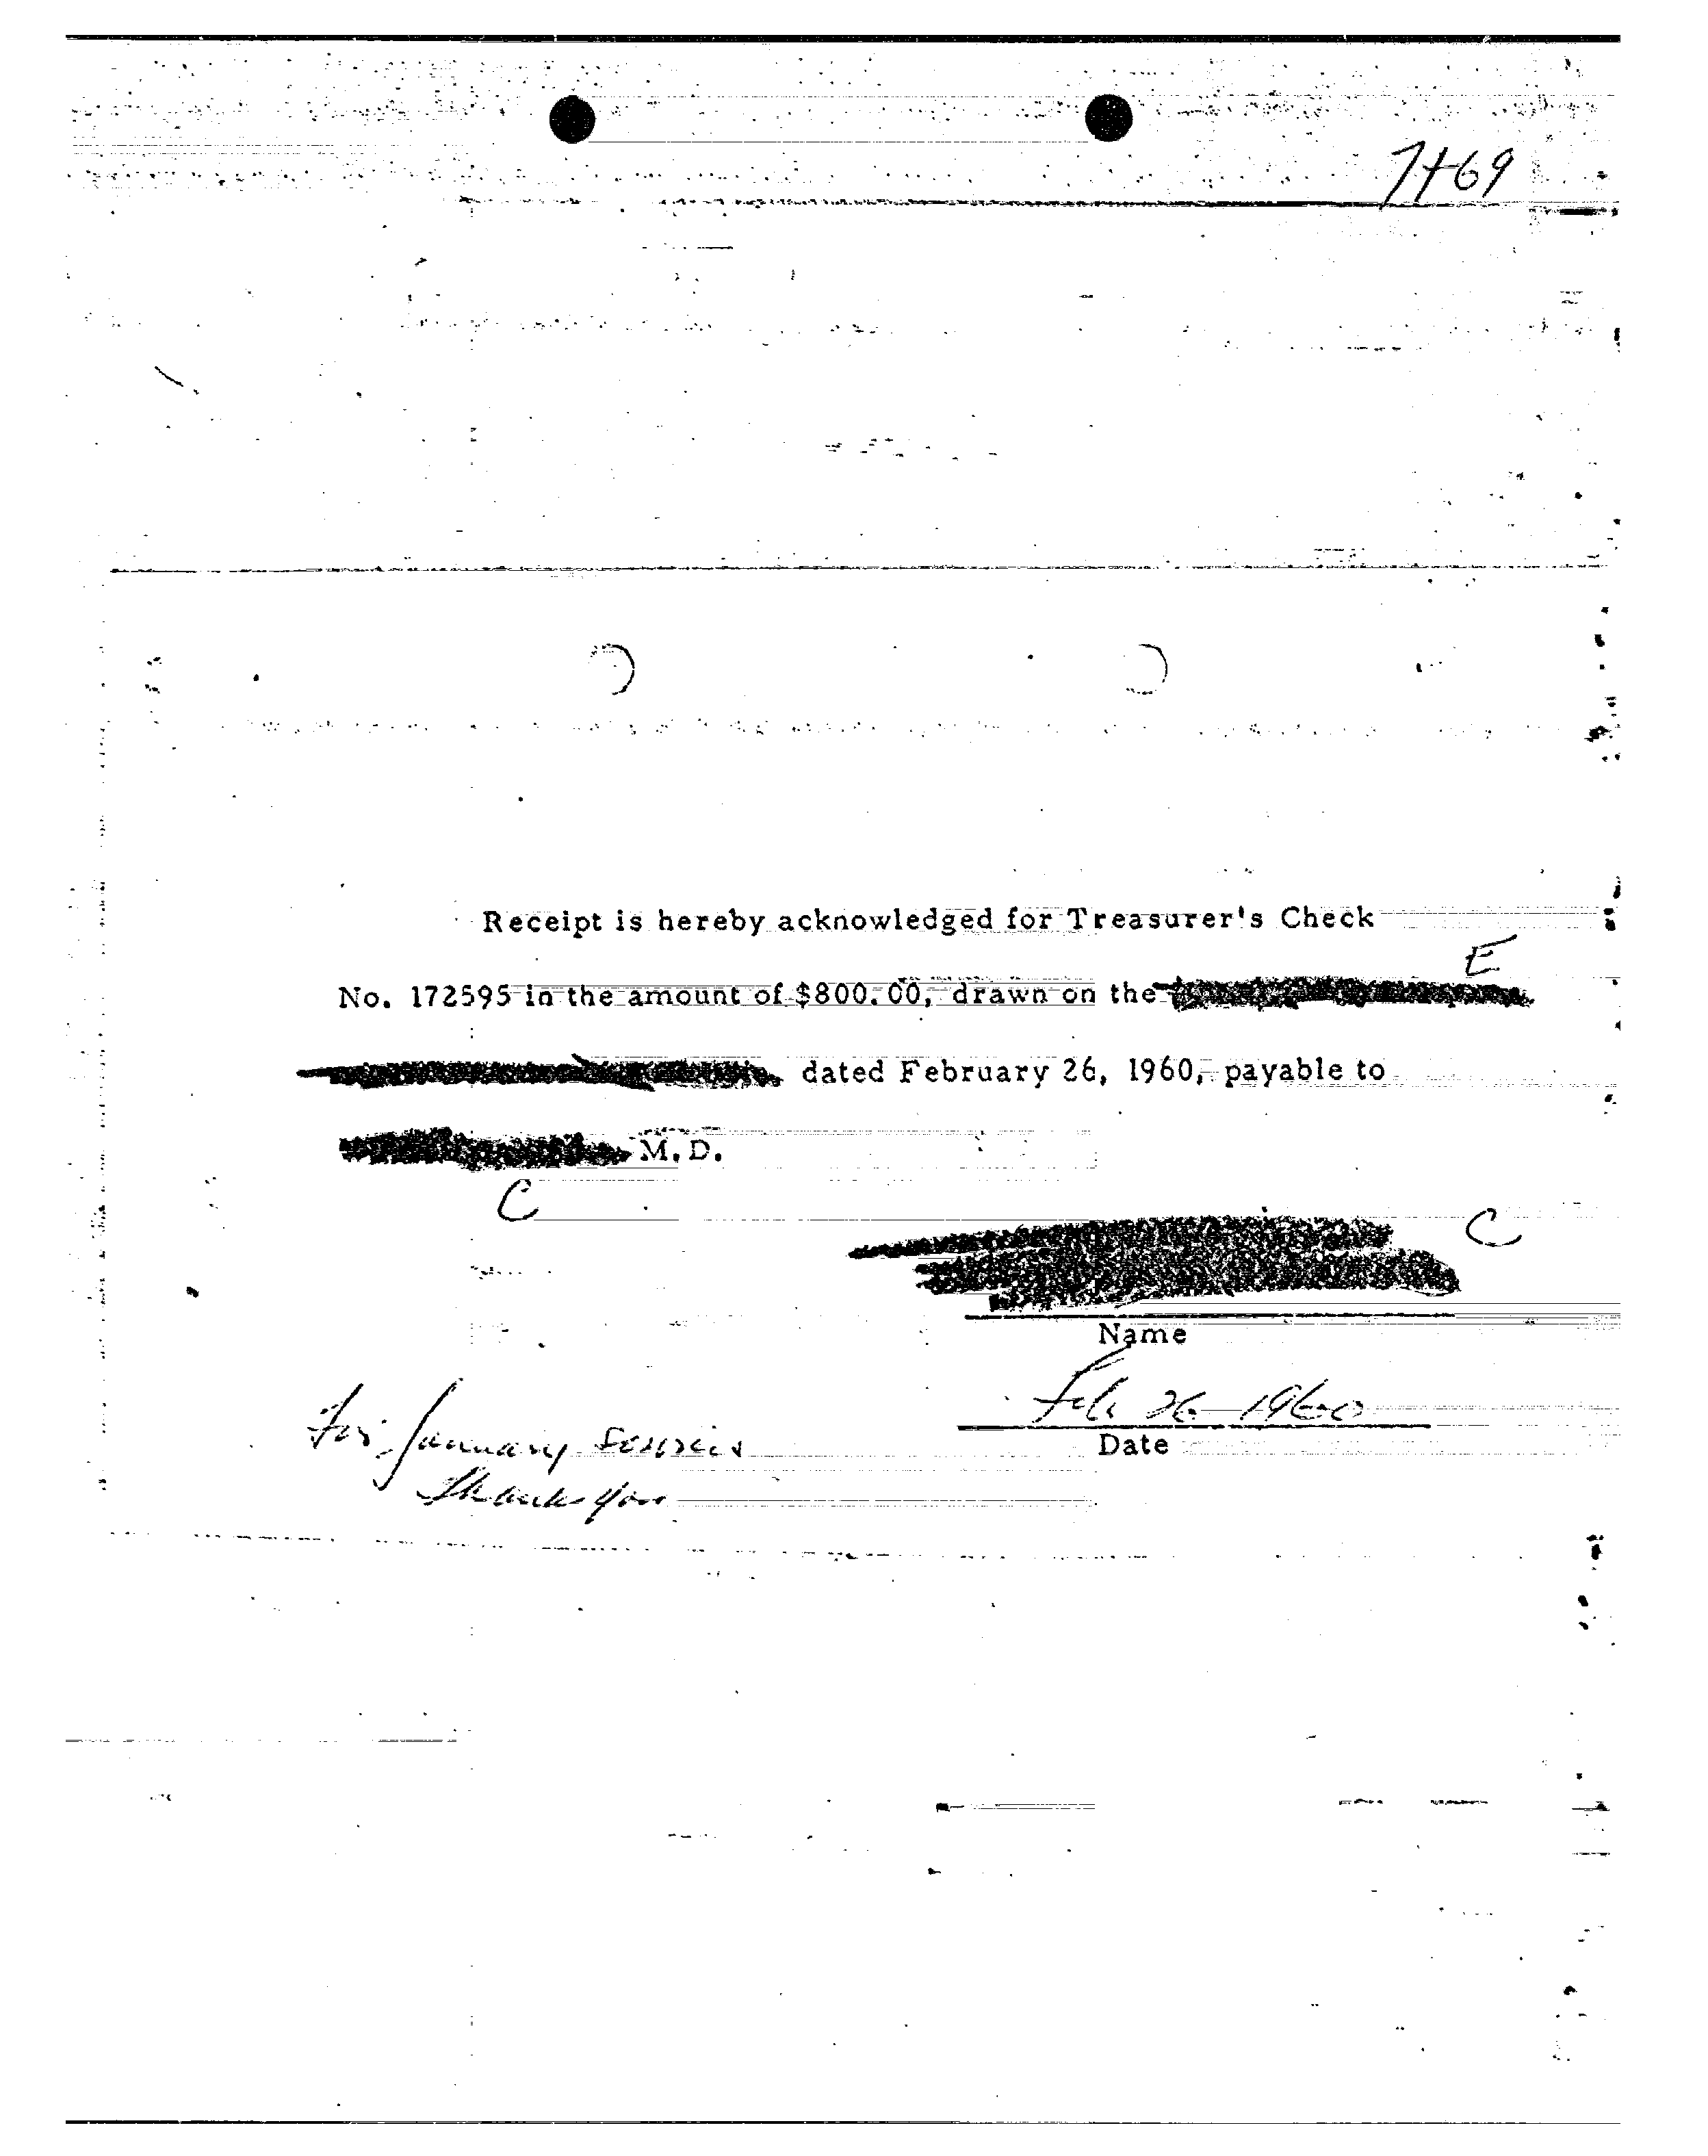 7469
Receipt is hereby acknowledged for Treasurer's Check
E
No. 172595 in the amount of $800.00, drawn on the
dated February 26, 1960, payable to
M.D.
C
C
Name
Feb 26 1960
Date
For January services
Thank you